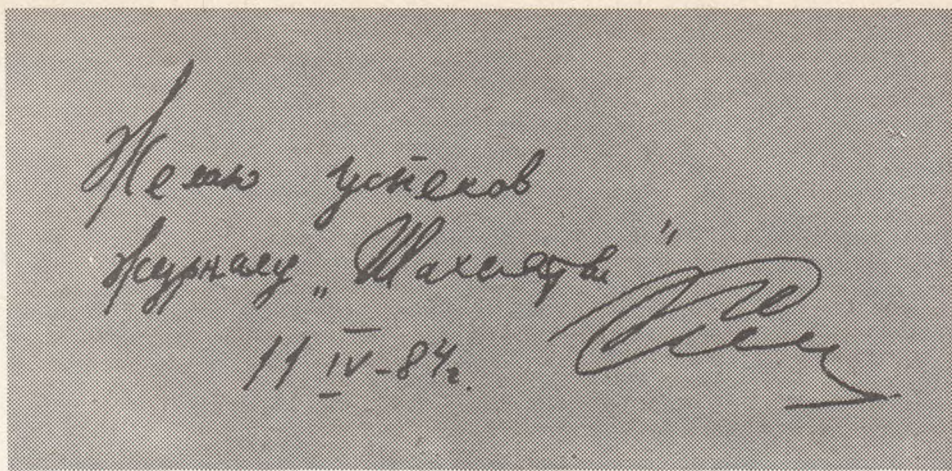 Желаю успехов
журналу „Шахматы"
11 IV-84г.